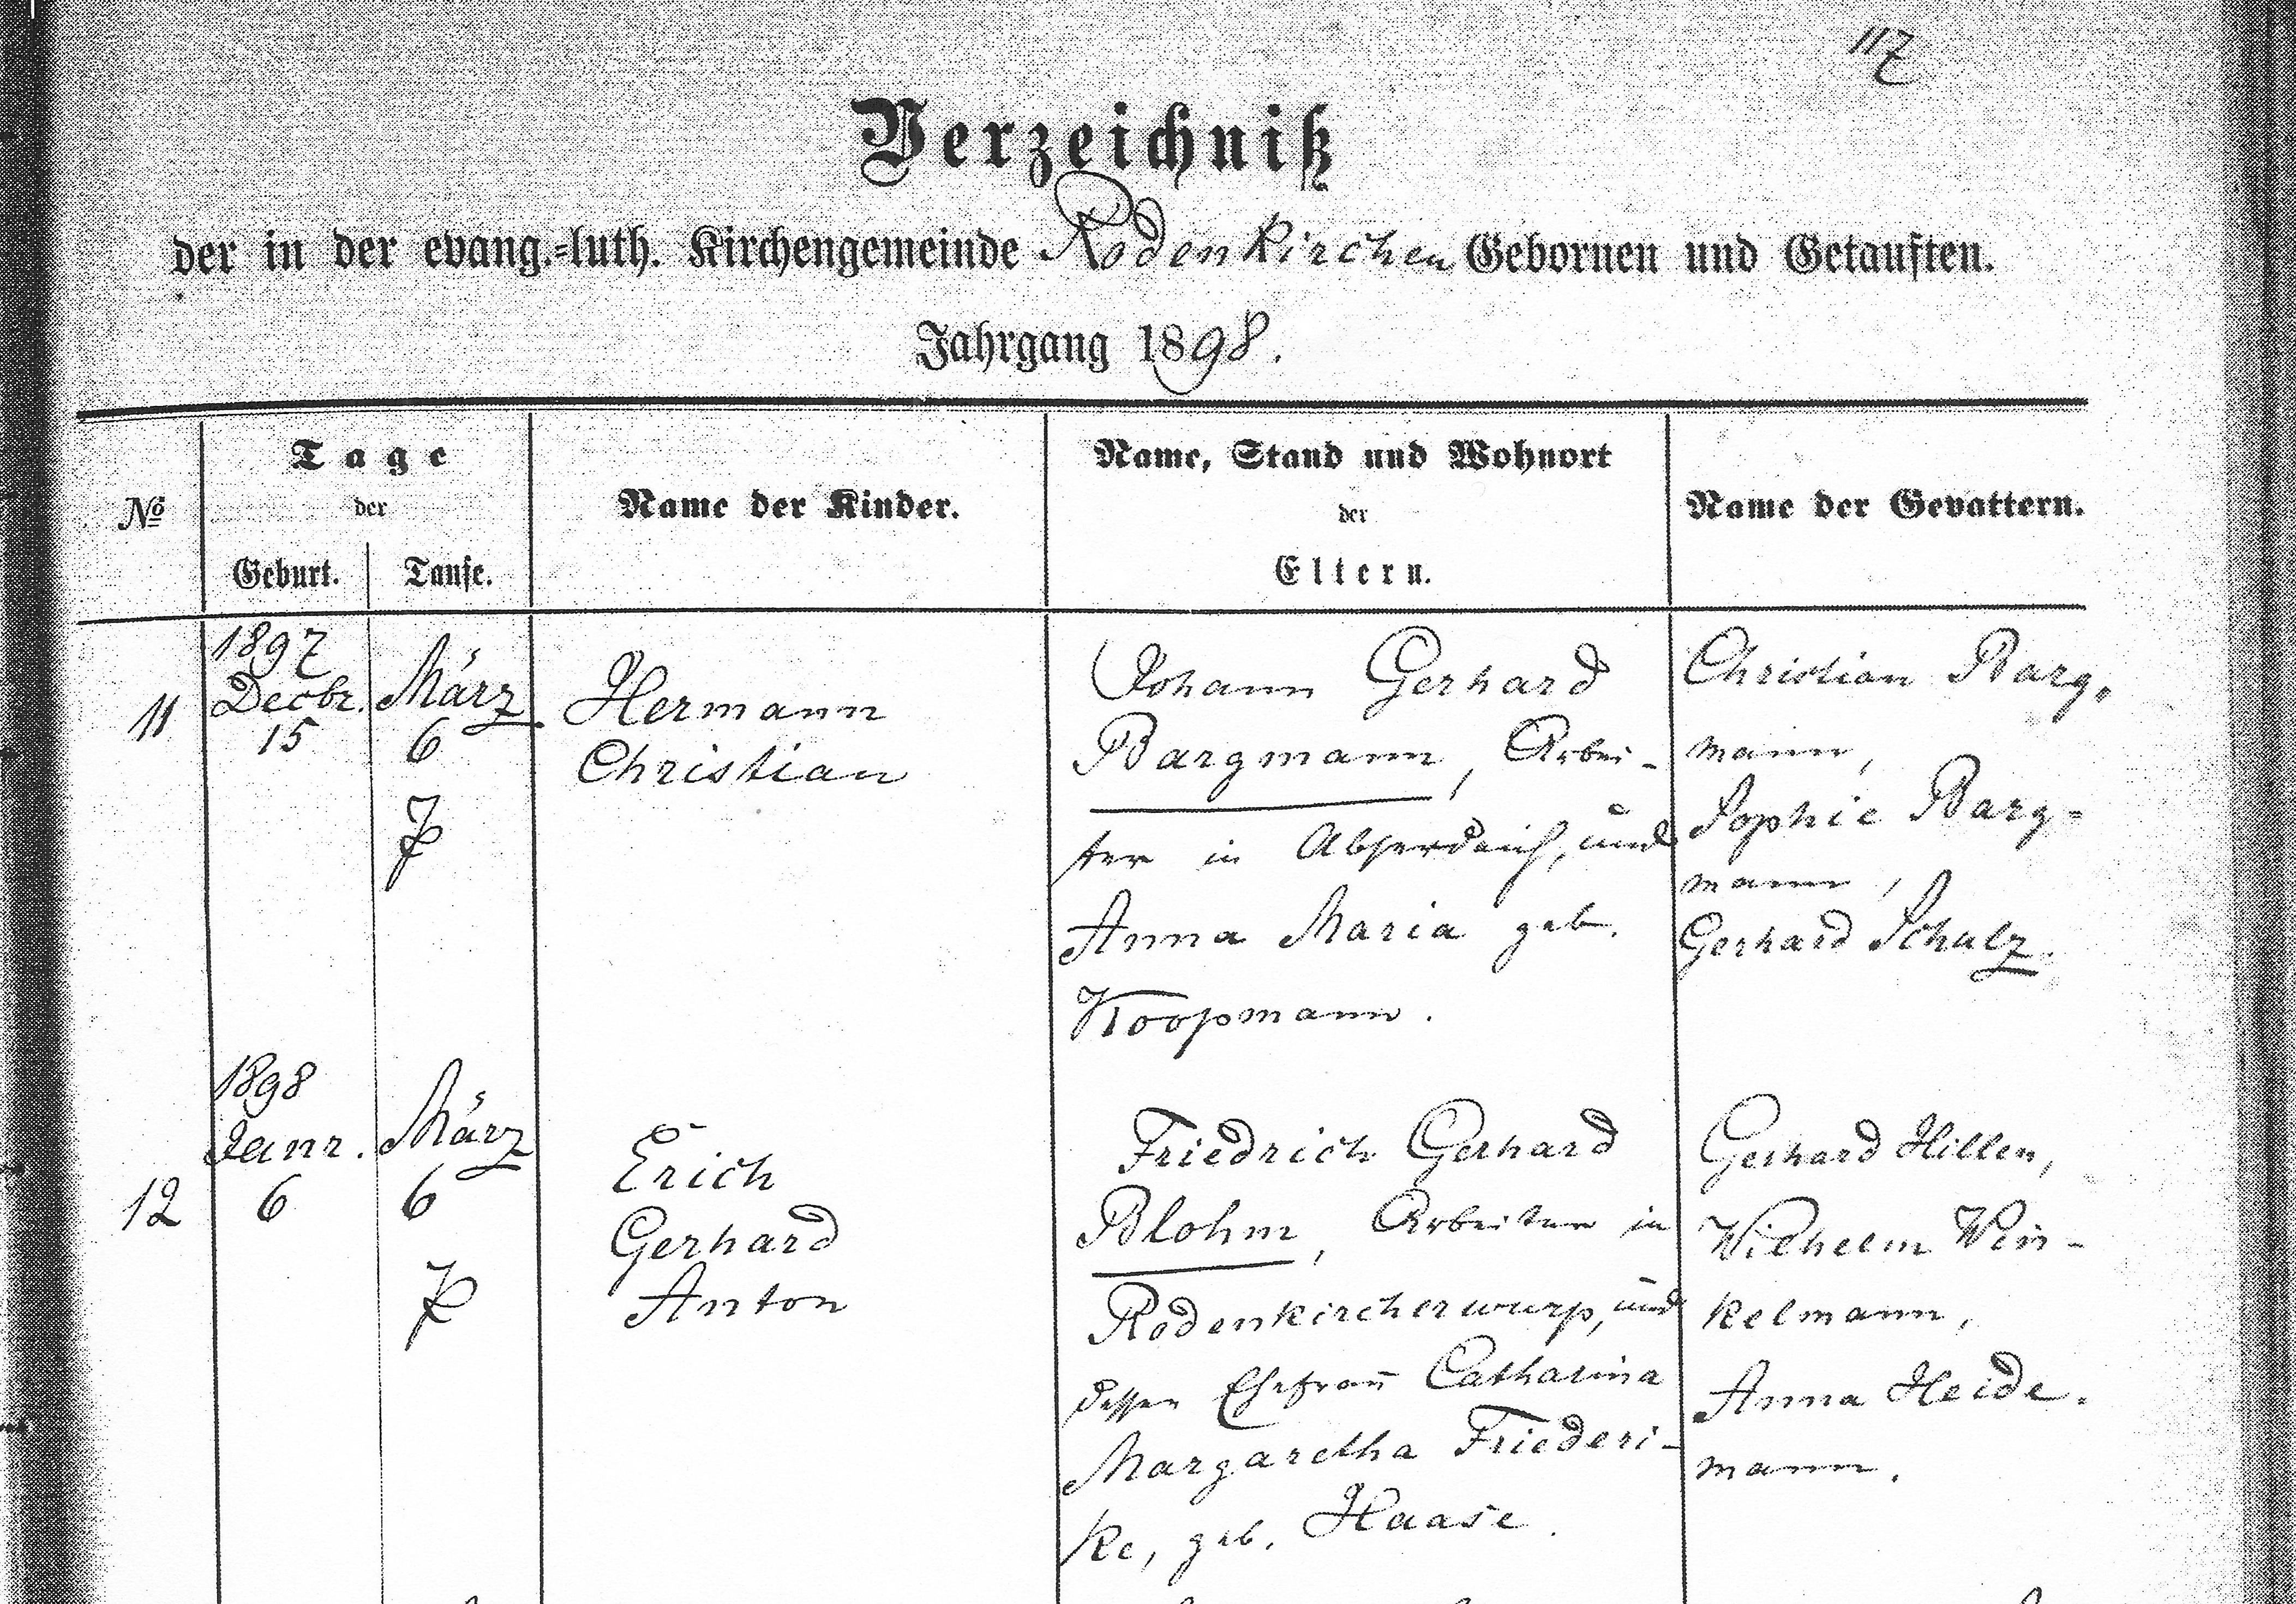 117
Verzeichniß
der in der evang.=luth. Kirchengemeinde Rodenkirchen Gebornen und Getauften.
Jahrgang 1898.
No
Tage
der
Geburt.
Taufe.
Name der Kinder.
Name, Stand und Wohnort
der
Eltern.
Name der Gevattern.
11
1897
Decbr.
15
März
6
Hermann
Christian
Johann Gerhard
Bargmann, Arbei-
ter in Abserdeich, und
Anna Maria geb.
Koopmann.
Christian Barg-
mann,
Sophie Barg-
mann,
Gerhard Schulz.
12
1898
Janr.
6
März
6
Erich
Gerhard
Anton
Friedrich Gerhard
Blohm, Arbeiter in
Rodenkircherwurp, und
dessen Ehefrau Catharina
Margaretha Friederi-
ke, geb. Haase.
Gerhard Hillen,
Wilhelm Win-
kelmann,
Anna Heide-
mann.